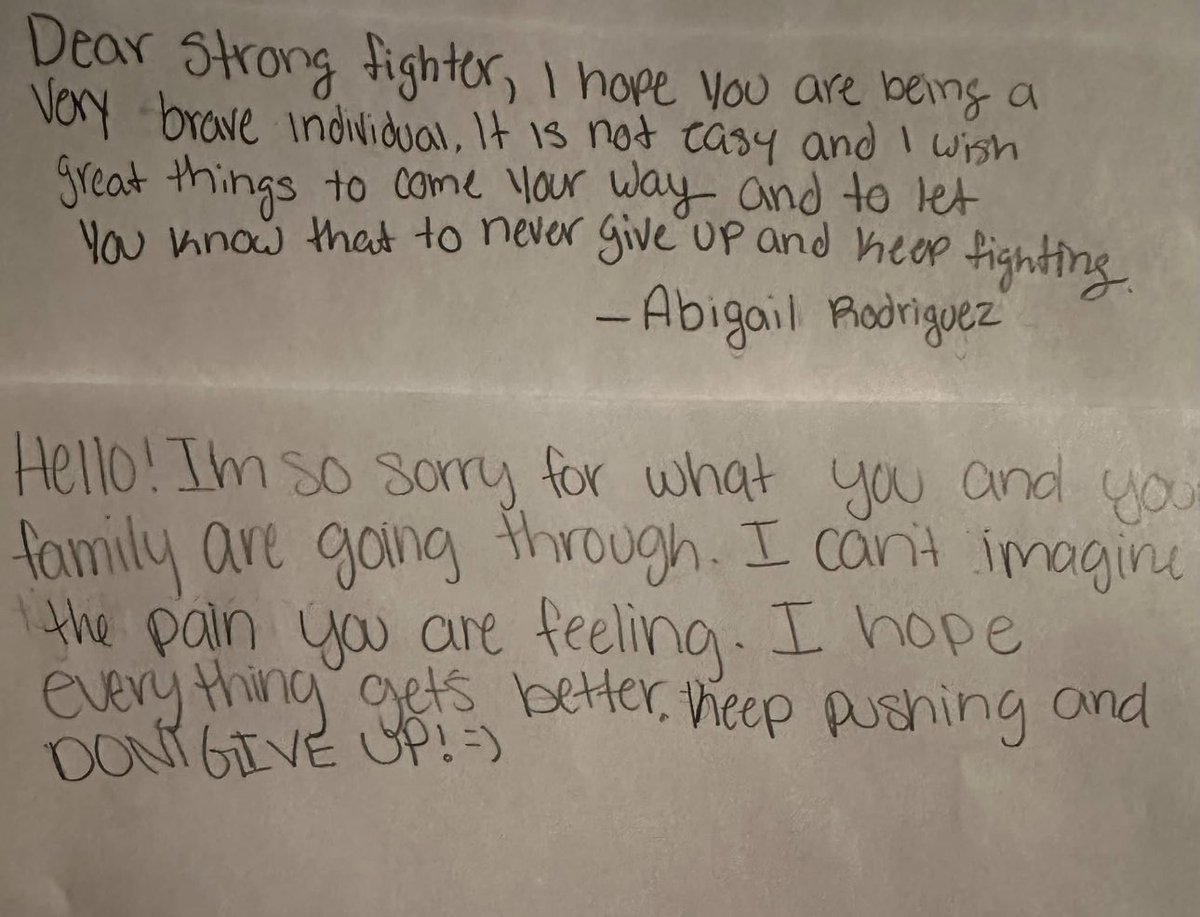 Dear Strong fighter, I hope you are being a
Very brave individual. It is not easy and I wish
great things to come your way and to let
you know that to never give up and keep fighting.
- Abigail Rodriguez
Hello! I'm so sorry for what you and you
family are going through. I can't imagine
the pain you are feeling. I hope
everything gets better. Keep pushing and
DON'T GIVE UP! =)